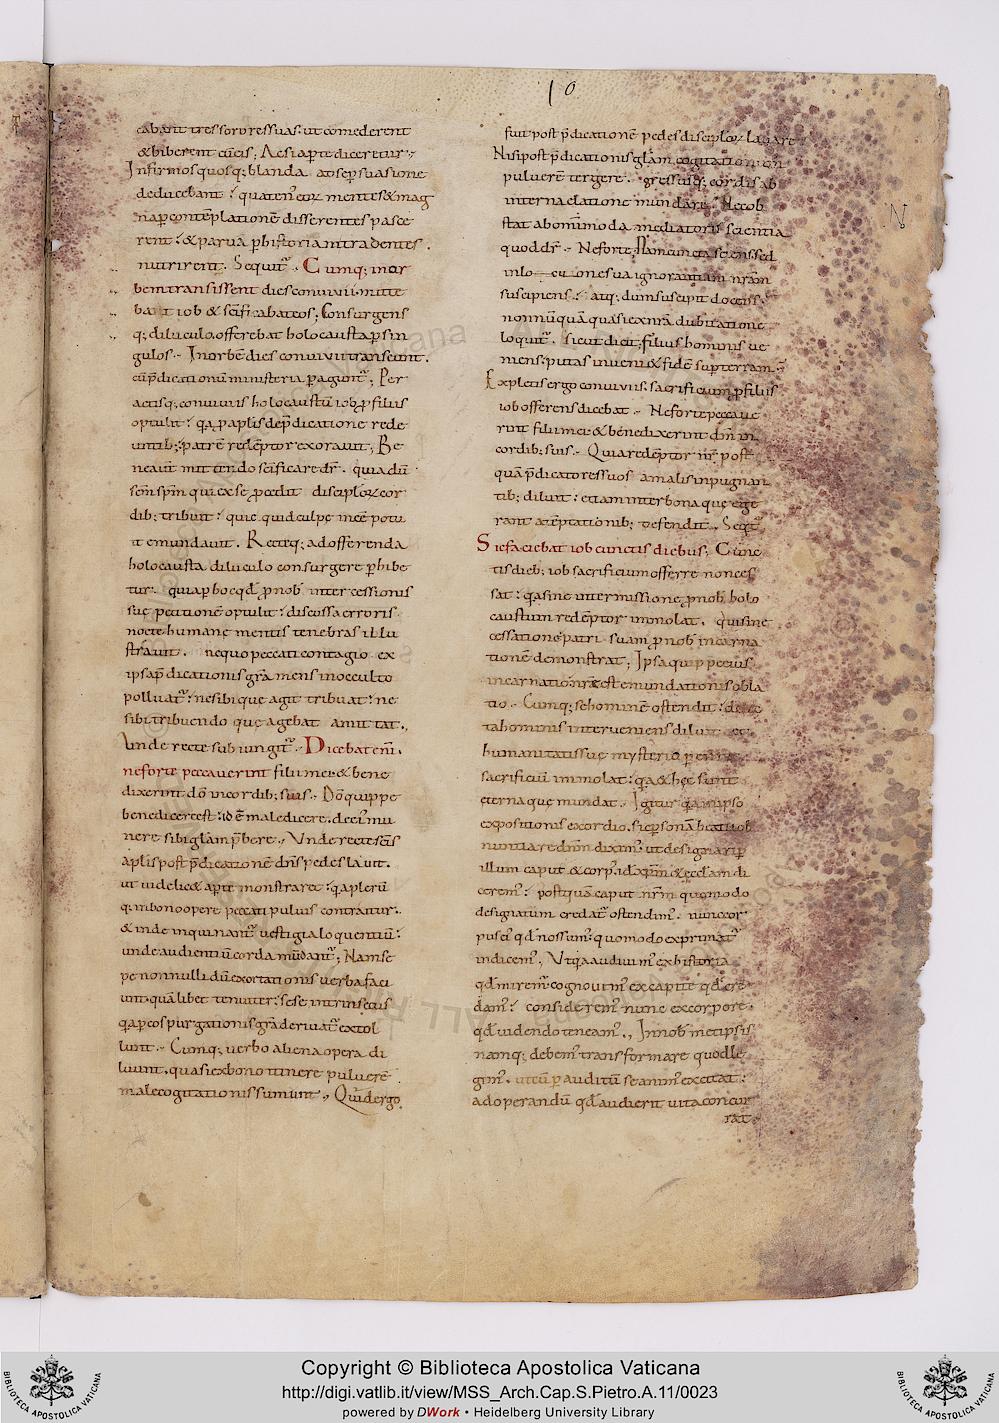 10
cabant tres sorores suas. ut comederent
& biberent cũ eis; Ac si apte diceret᷑.
Infirmos quosq; blanda ac sep suasione
deducebant ? quaten᷑ eoꝝ mentes & mag
na p contẽplationẽ disserentes pasce
rent ? & parua p historiam tradentes
nutrirent. Sequit᷑. Cumq; in or
bem transissent dies conuiuii. mitte
bat iob & scificabat eos; Consurgens
q; diluculo. offerebat holocausta p sin
gulos. In orbẽ dies conuiuii transeunt.
cũ p̃dicationũ ministeria pagunt᷑; Per
actisq; conuiuiis holocaustũ iob ꝓ filiis
optulit ? q̃a p aplis de p̃dicatione rede
untib; patrẽ redẽptor exorauit; Be
ne aut̃ mittendo scificare dr̃. quia dũ
scm̃ spm̃ qui ex se ꝓcedit disciploꝝ cor
dib; tribuit ? quicquid culpę inee potu
it emundauit. Recteq; ad offerenda
holocausta diluculo consurgere phibe
tur. quia p hoc qđ ꝓ nob intercessionis
suę petitionẽ optulit ? discussa erroris
nocte humanę mentis tenebras illu
strauit. ne quo peccati contagio ex
ipsa p̃dicationis gr̃a mens in occulto
polluat᷑ ? ne sibi quę agit tribuat ? ne
sibi tribuendo quę agebat amittat.
Unde recte subiungit᷑. Dicebat em̃.
ne forte peccauerint filii mei & bene
dixerint dõ in cordib; suis. Dõ quippe
benedicere est ? id ẽ maledicere. de ei mu
nere sibi glãm p̃bere. Unde recte scis
aplis post p̃dicationẽ dñs pedes lauit.
ut uidelic& apte monstraret ? q̃a plerũ
q; in bono opere peccati puluis contrahitur.
& inde inquinant᷑ uestigia loquentiũ ?
unde audientiũ corda mũdant᷑; Nam se
pe nonnulli dũ exortationis uerba faci
unt. quãlibet tenuiter ? sese intrinsecus
q̃a p eos purgationis gr̃a deriuat᷑ extol
lunt. Cumq; uerbo aliena opera di
luunt. quasi ex bono itinere puluerẽ
male cogitationis sumunt. Quid ergo
fuit post p̃dicationẽ pedes disciploꝝ lauare
Nisi post p̃dicationis glãm cogitationum
puluerẽ tergere. gressusq; cordis ab
interna elatione mundare. Nec ob
stat ab omimoda mediatoris scientia
quod dr̃. Ne forte; Nam cuncta sciens sed
in lo cutione sua ignorantiam nr̃am
suscipiens ? atq; dum suscipit docens ?
nonnũquã quasi ex nr̃a dubitatione
loquit᷑. Sicut dicit; filius hominis ue
niens. putas inueni& fidẽ sup terram ?
Expletis ergo conuiuiis. sacrificium ꝓ filiis
iob offerens dicebat. Ne forte peccaue
rint filii mei & benedixerint dm̃ in
cordib; suis. Quia redẽptor nr̃ post
quã p̃dicatores suos a malis inpugnan
tib; diluit ? etiam inter bona que ege
rant a tẽptationib; defendit. Seqt᷑
Sic faciebat iob cunctis diebus; Cunc
tis dieb; iob sacrificium offerre non ces
sat ? q̃a sine intermissione ꝓ nob holo
caustum redẽptor immolat. qui sine
cessatione patri suam ꝓ nob incarna
tionẽ demonstrat; Ipsa quippe eius
incarnatio nr̃ẽ est emundationis obla
tio. Cumq; se hominẽ ostendit ? delic
ta hominis interueniens diluit. &
humanitatis suę mysterio perenne
sacrificiũ immolat ? q̃a & hęc sunt
eterna quę mundat. Igitur q̃a in ipso
expositionis exordio. sic psonã beati iob
nuntiare dñm diximꝰ. ut designari p
illum caput & corpꝰ. id ẽ xpm̃ & eccl̃am di
ceremꝰ ? postquã caput nr̃m quomodo
designatum credat᷑ ostendimꝰ. nunc cor
pus eiꝰ qđ nos sumꝰ. quomodo exprimat᷑
indicemꝰ. Ut q̃a audiuimꝰ ex historia
qđ miremꝰ. cognouimꝰ ex capite qđ cre
damꝰ ? consideremꝰ nunc ex corpore
qđ uidendo teneamꝰ. In nob metipsis
namq; debemꝰ transformare quod le
gimꝰ. ut cũ p auditũ se animꝰ excitat ?
ad operandũ qđ audierit uita concur
rat.
Copyright © Biblioteca Apostolica Vaticana
http://digi.vatlib.it/view/MSS_Arch.Cap.S.Pietro.A.11/0023
powered by DWork • Heidelberg University Library